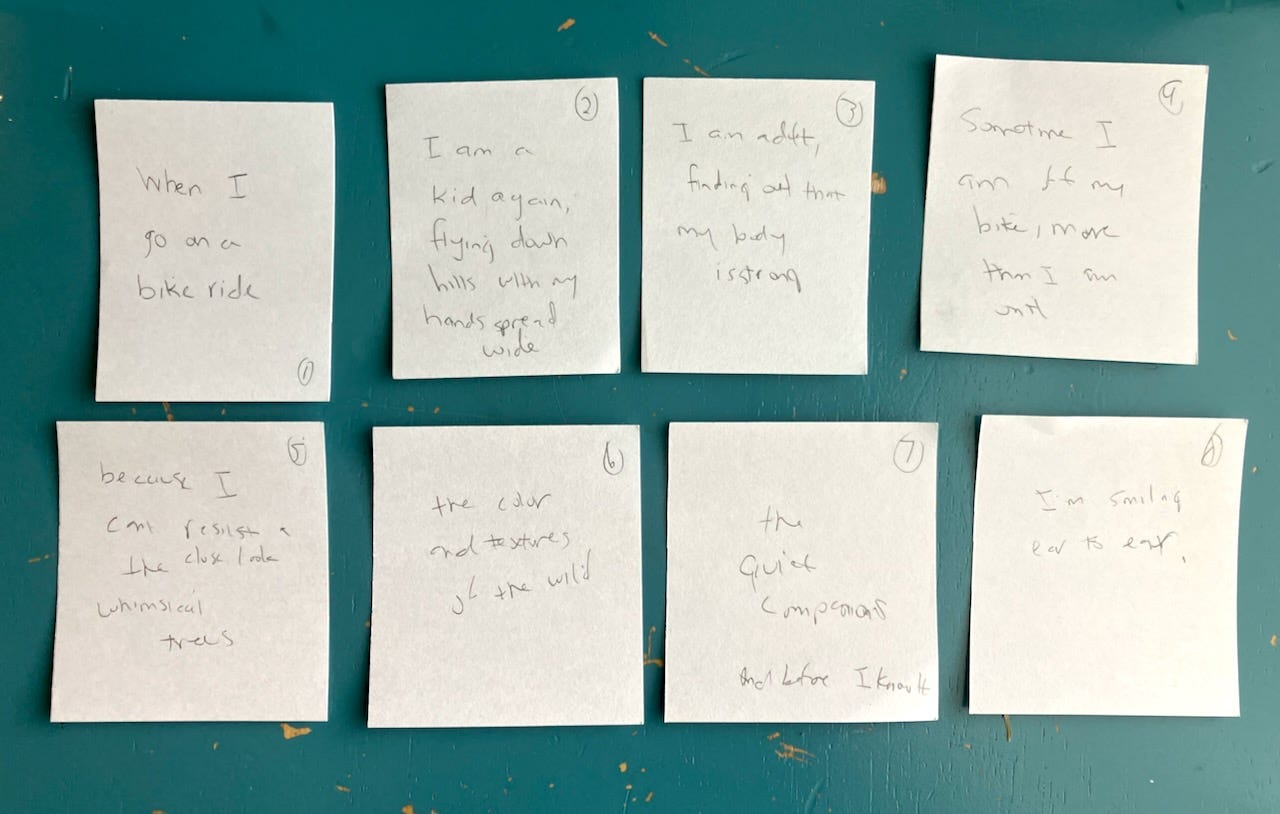 When I
go on a
bike ride
①
②
I am a
kid again,
flying down
hills with my
hands spread
wide
③
I am adult,
finding out that
my body
is strong
④
Sometime I
am off my
bike, more
than I am
on it
⑤
because I
cant resist a
the close look
whimsical
trees
⑥
the color
and textures
of the wild
⑦
the
Quiet
Companions
And before I know it
⑧
I'm smiling
ear to ear.